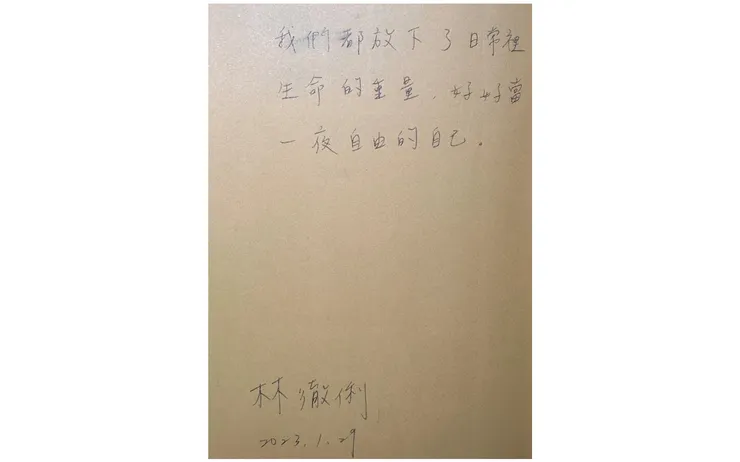 我們都放下了日常裡
生命的重量，好好當
一夜自由的自己。
林徹俐
2023.1.29